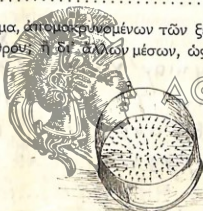 μα, ἀπομακρυνομένων τῶν
θρου; ἢ δι' ἄλλων μέσων, ὡς